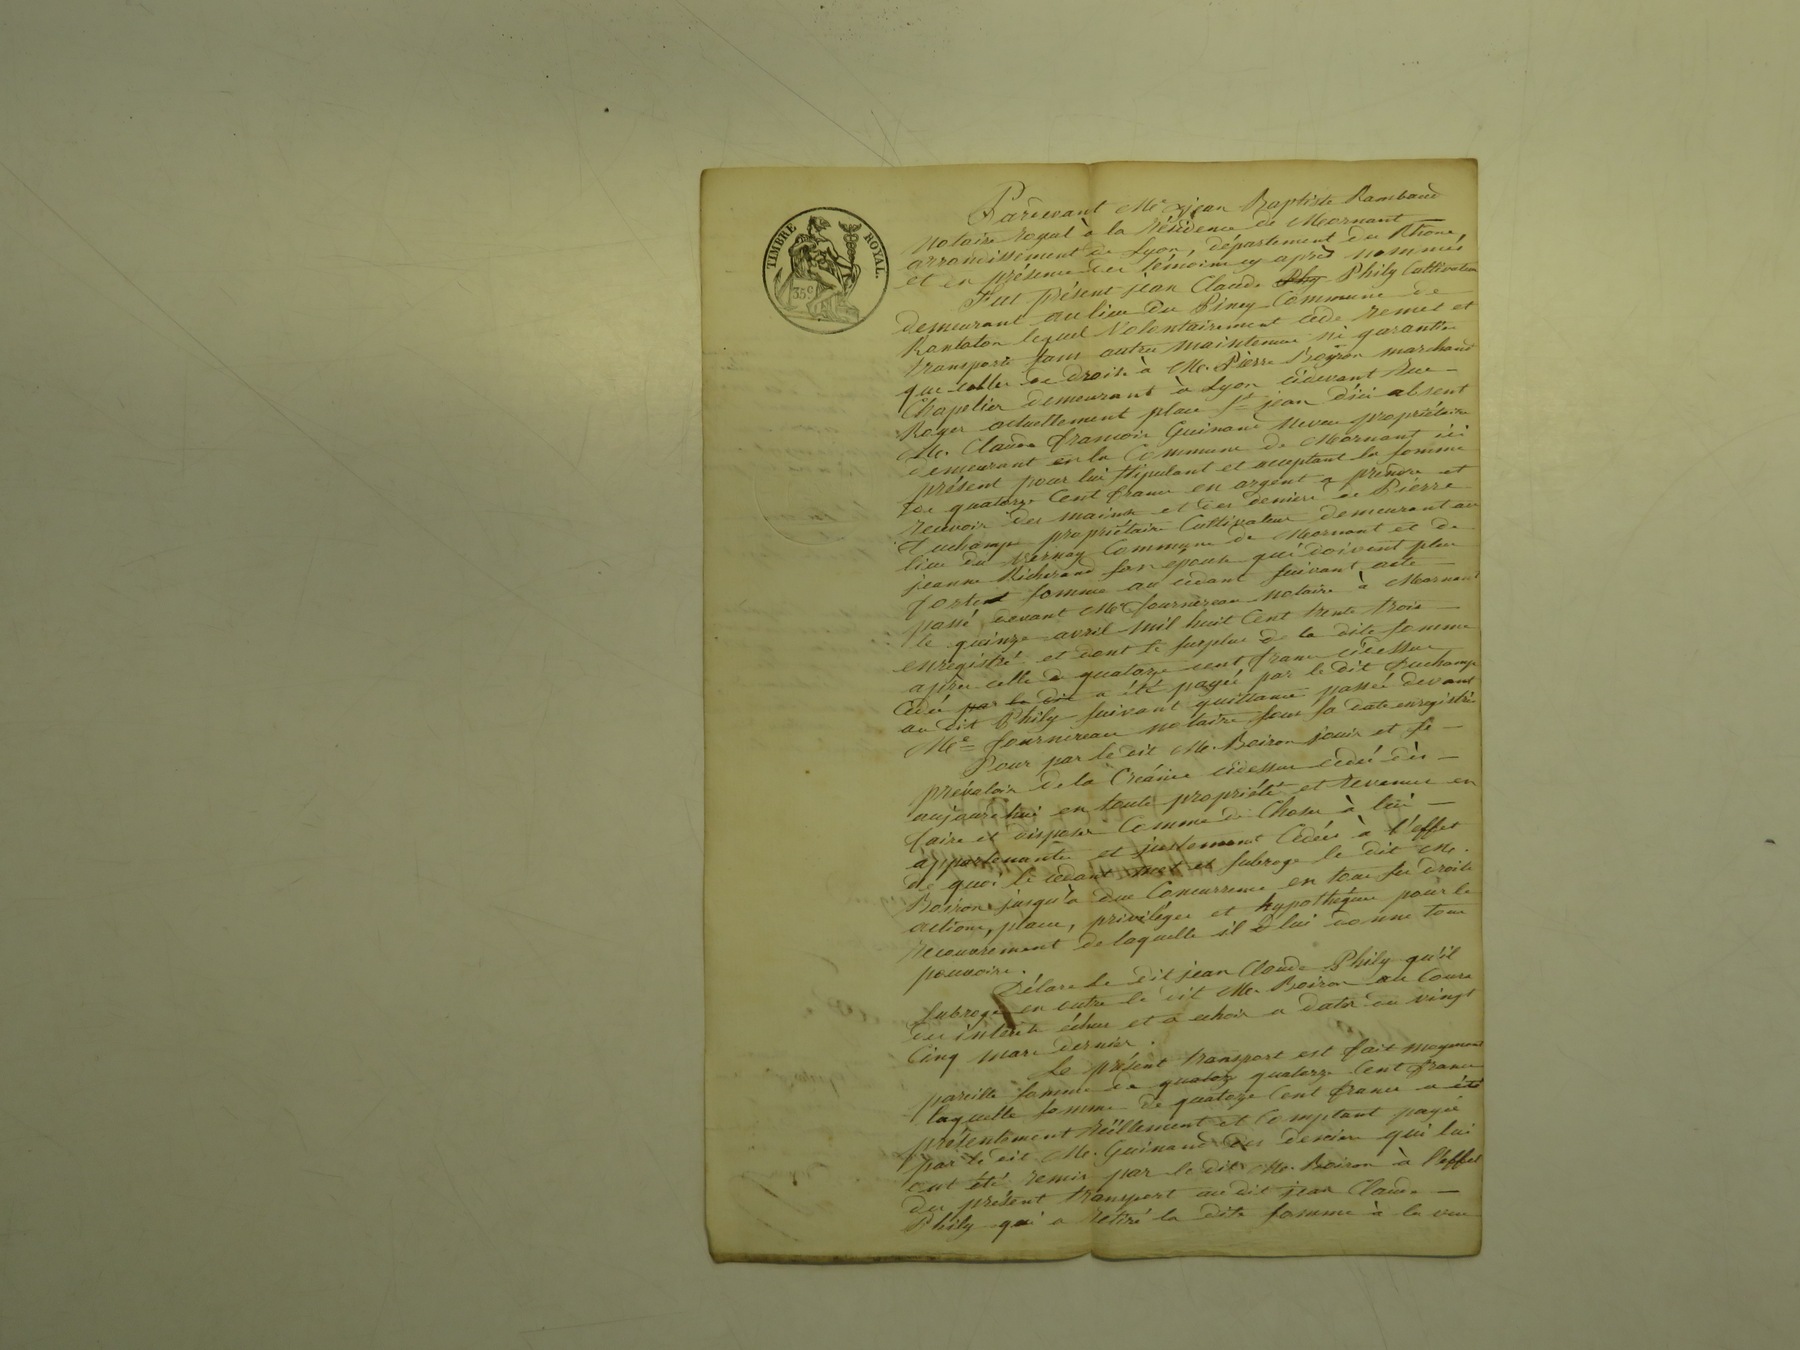 TIMBRE ROYAL.
35c
Pardevant Me jean Baptiste Rambaud
Notaire royal à la résidence de Mornant
arrondissement de Lyon, département du Rhône,
et en présence des témoins cy après nommés
Fut présent jean Claude Phy Phily Cultivateur
demeurant au lieu du Piney Commune de
Rontalon lequel Volontairement cède remet et
transporte sans autre maintenue ni garantie
que celles de droit à M. Pierre Boyron marchand
Chapelier demeurant à Lyon cidevant rue
Roger actuellement place St jean d'ici absent
M. Claude françois Guinand neveu propriétaire
demeurant en la Commune de Mornant ici
présent pour lui stipulant et acceptant la somme
de quatorze Cent francs en argent à prendre et
recevoir des mains et des deniers de Pierre
Luchamp propriétaire Cultivateur demeurant au
lieu du Vernay Commune de Mornant et de
jeanne Richerand son epouse qui doivent plus
forte somme au cédant suivant acte
passé devant Me fournereau Notaire à Mornant
le quinze avril mil huit Cent trente trois
enregistré et dont le surplus de la dite somme
après celle de quatorze cent francs cidessus
Cédée par le dit a été payée par le dit Luchamp
au dit Phily suivant quittance passée devant
Me fournereau notaire sous sa date enregistrée
Pour par le dit M. Boiron jouir et se
prévaloir de la Créance cidessus cédée dès
aujourd'hui en toute propriété et revenus en
faire et disposer Comme de Chose à lui
appartenante et justement Cédée à l'effet
de quoi le cédant met et subroge le dit M.
Boiron jusqu'à due Concurrence en tous ses droits
actions, places, privilèges et hypothèques pour le
recouvrement de laquelle il lui donne tous
pouvoirs.
Déclare le dit jean Claude Phily qu'il
subroge en outre le dit M. Boiron au Cours
des intérêts échus et a échoir a dater du vingt
Cinq mars dernier.
Le présent transport est fait moyennant
pareille somme de quatorz quatorze Cent francs
laquelle somme de quatorze Cent francs a été
présentement réellement et Comptant payée
par le dit M. Guinand des deniers qui lui
ont été remis par le dit M. Boiron à l'effet
du présent transport au dit jean Claude
Phily qui a retiré la dite somme à la vue